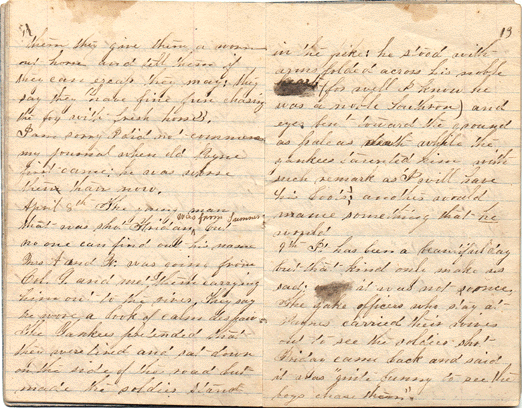 them they give them a worn
out horse and tell them if
they can escape they may; they
say they have fine fun chasing
the boy with fresh horses.
I am sorry I did not commence
my journal when old Payne
first came; he was worse
then than now.
April 8th The young man
that was shot Friday, was from Summer
no one can find out his name
Mrs. and K. was going from
Col. G. and met them carrying
him out to the river. They say
he wore a look of calm despair
The Yankees pretended that
they were tired and sat down
on the side of the road but
made the soldier stand
13
in the pike; he stood with
arms folded across his noble
(for well I know he
was a noble Southron) and
eyes bent toward the ground
as pale as while the
yankees taunted him with
such remark as I will have
his boots; another would
name something that he
would
9th It has been a beautiful day
but that kind only make us
sad; it was not some
The gake officers who stay at
carried their wives
out to see the soldier shot
Friday came back and said
it was quite funny to see the
boys chase them.